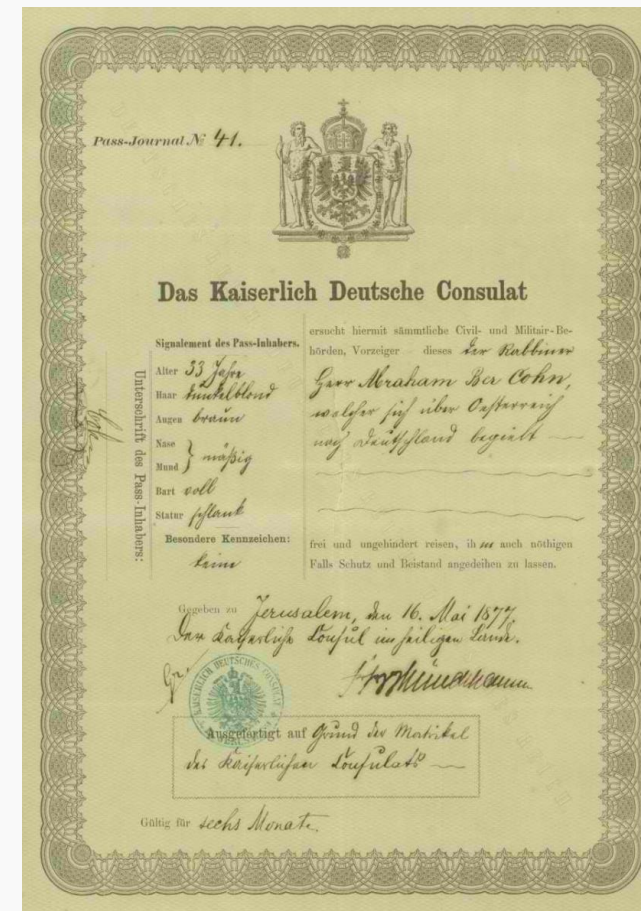 Pass-Journal № 41.
Das Kaiserlich Deutsche Consulat
Signalement des Pass-Inhabers.
Alter 33 Jahre
Haar dunkelblond
Augen braun
Nase
Mund } mäßig
Bart voll
Statur schlank
Besondere Kennzeichen:
keine
Unterschrift des Pass-Inhabers:
ersucht hiermit sämmtliche Civil- und Militair-Be-
hörden, Vorzeiger dieses der Rabbiner
Herr Abraham Ber Cohn,
welcher sich über Oesterreich
nach Deutschland begiebt
frei und ungehindert reisen, ihm auch nöthigen
Falls Schutz und Beistand angedeihen zu lassen.
Gegeben zu Jerusalem, den 16. Mai 1877.
Der Kayserliche Consul im heiligen Lande.
KAISERLICH DEUTSCHES CONSULAT
Ausgefertigt auf Grund der Matrikel
des Kaiserlichen Consulats
Gültig für sechs Monate.